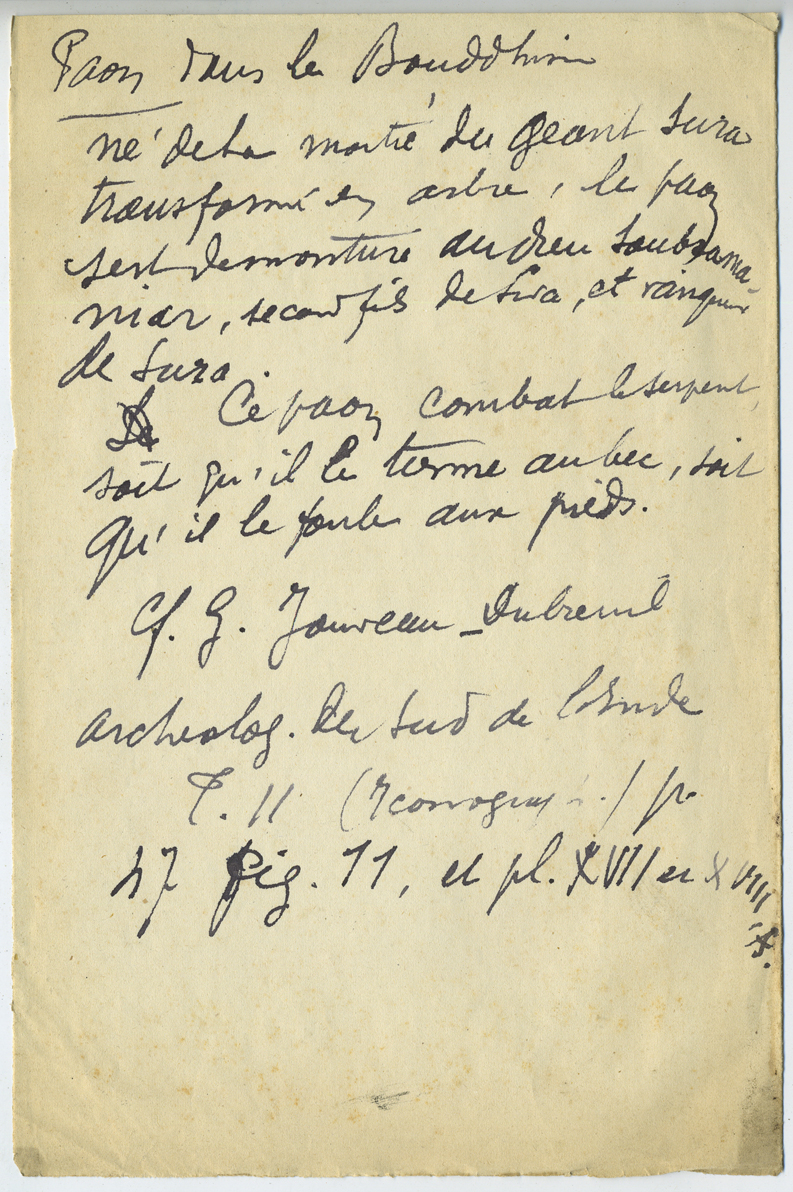 Paon dans le Bouddhisme
né de la moitié du géant Sura
transformé en arbre, le paon
sert de monture au dieu Soubrama-
niar, second fils de Siva, et vainqueur
de Sura.
Ce paon combat le serpent,
soit qu'il le tienne au bec, soit
qu'il le foule aux pieds.
Cf. G. Jouveau-Dubreuil
archeolog. du Sud de l'Inde
T. II (Iconograph.) p.
47 fig. 11, et pl. XVII et XVIII